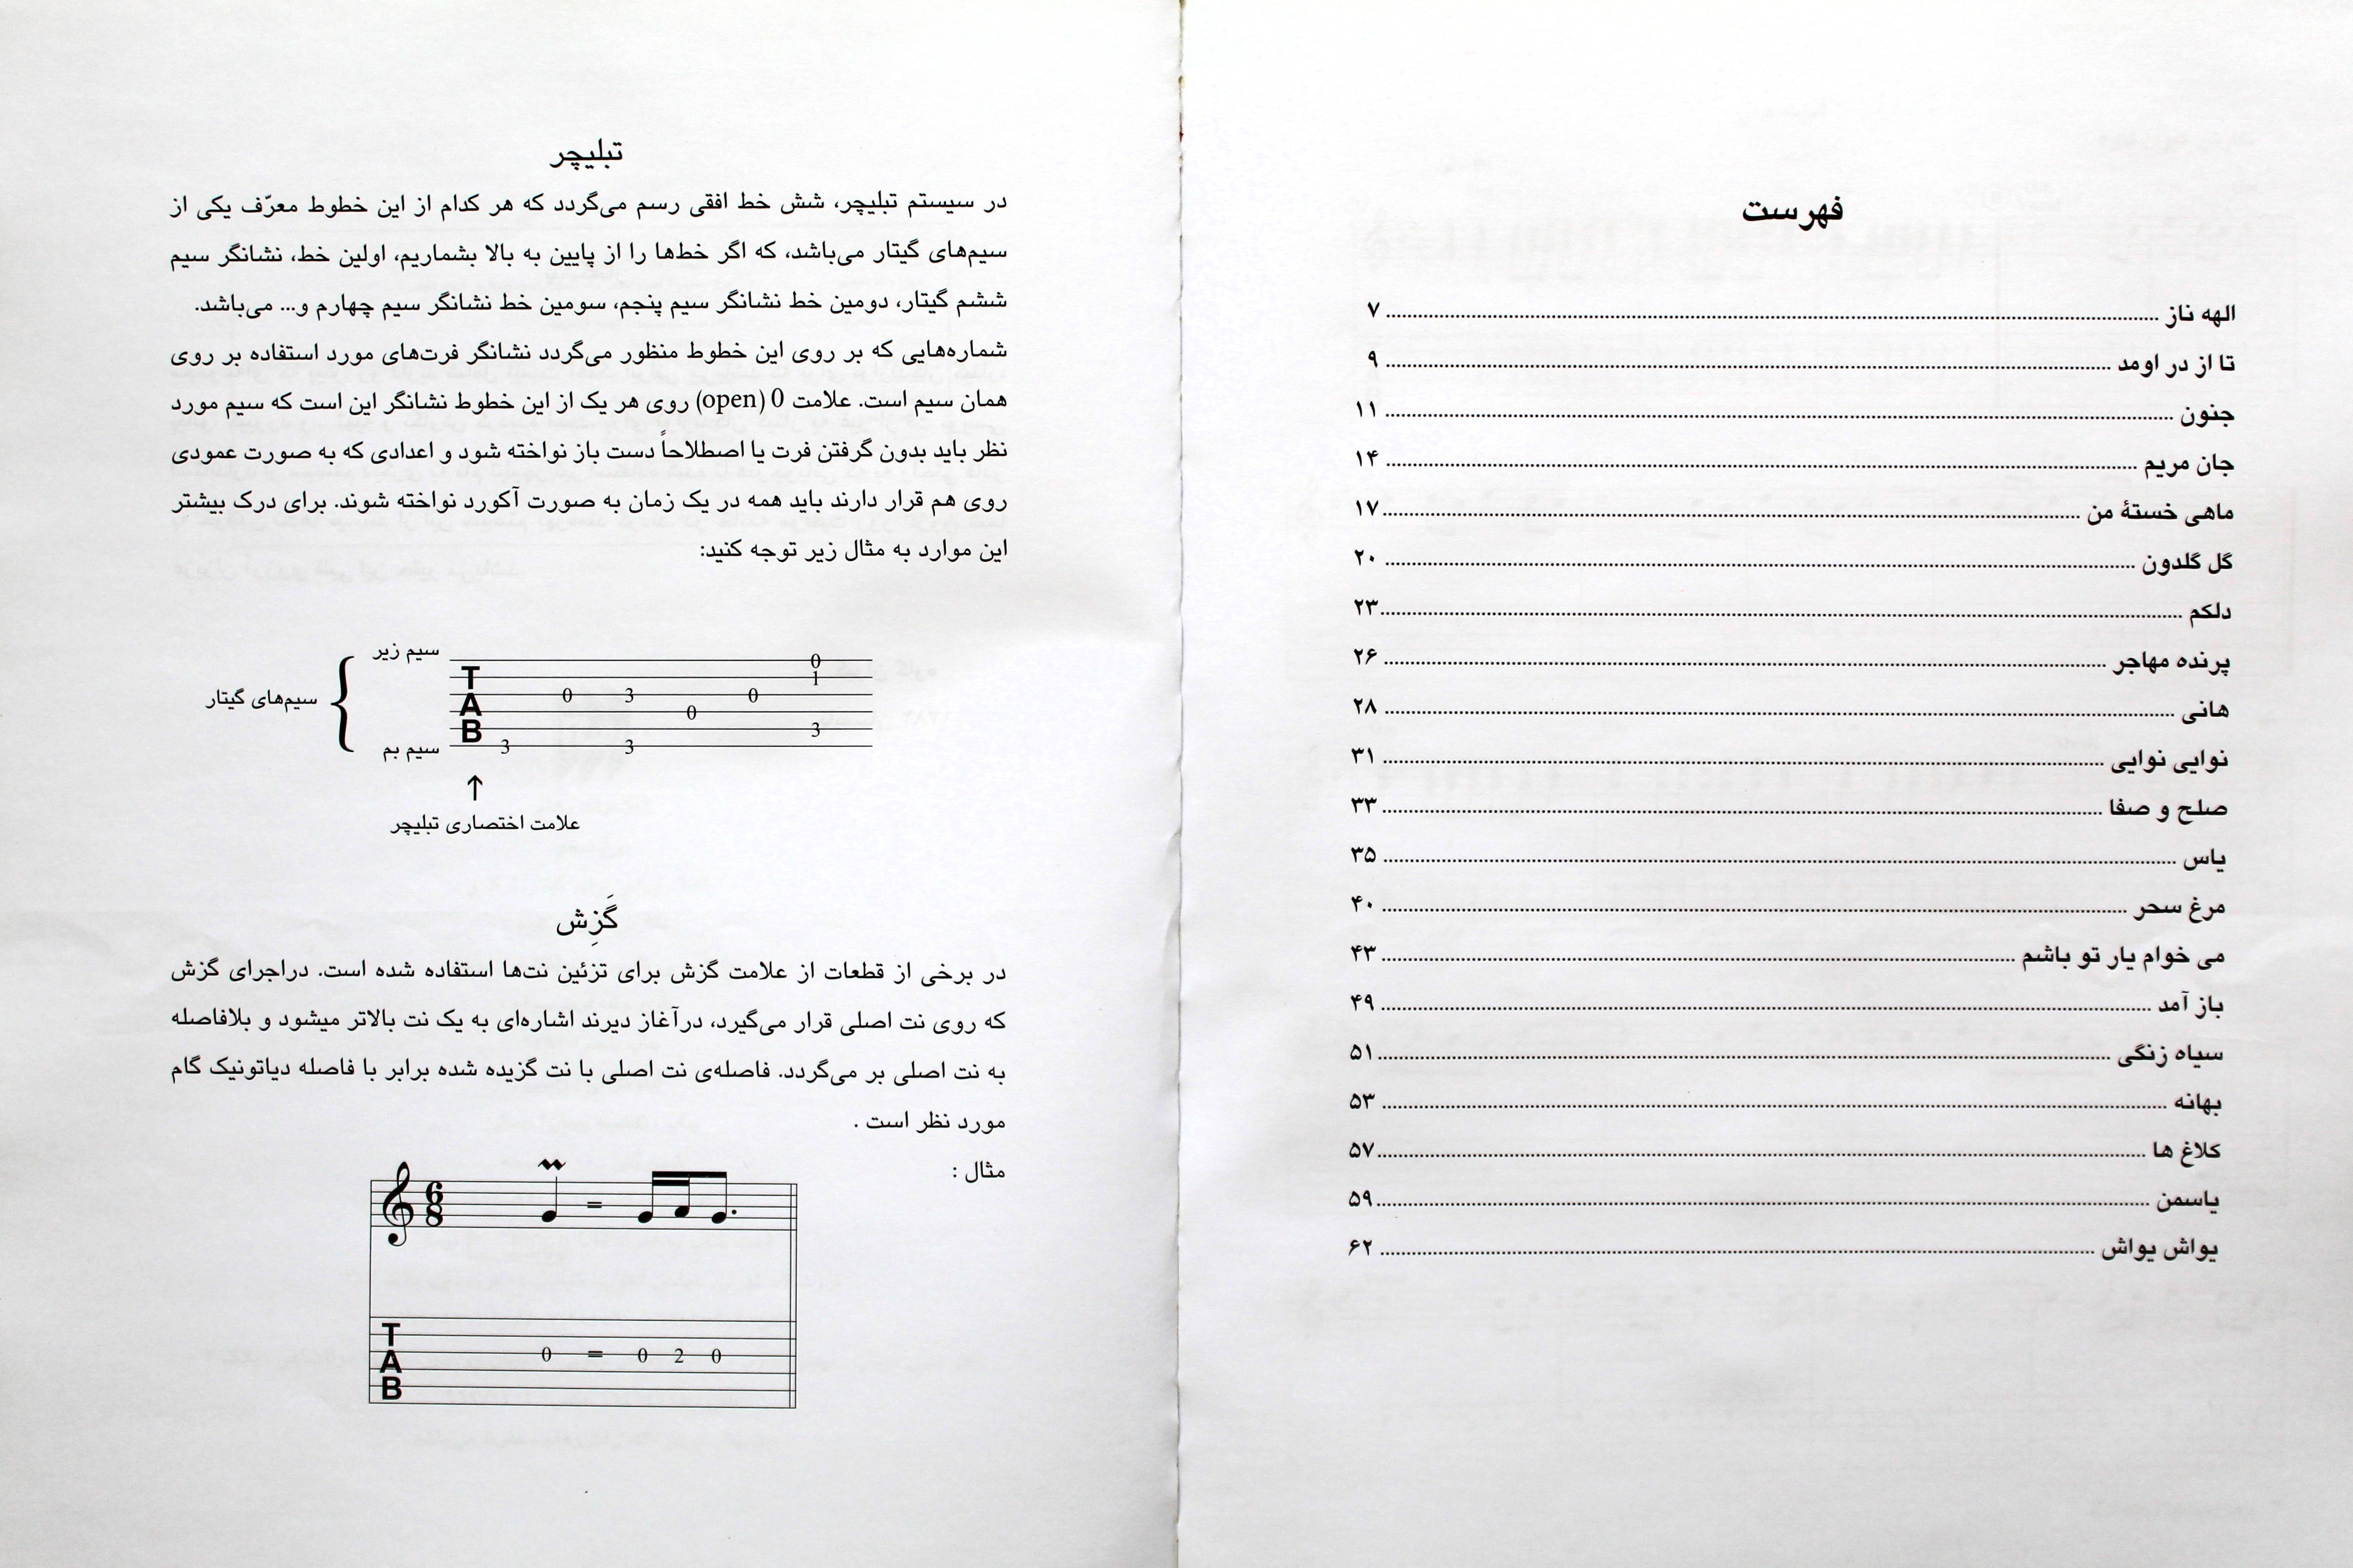 فهرست
الهه ناز ........ ۷
تا از در اومد ........ ۹
جنون ........ ۱۱
جان مریم ........ ۱۴
ماهی خستهٔ من ........ ۱۷
گل گلدون ........ ۲۰
دلکم ........ ۲۳
پرنده مهاجر ........ ۲۶
هانی ........ ۲۸
نوایی نوایی ........ ۳۱
صلح و صفا ........ ۳۳
یاس ........ ۳۵
مرغ سحر ........ ۴۰
می خوام یار تو باشم ........ ۴۳
باز آمد ........ ۴۹
سیاه زنگی ........ ۵۱
بهانه ........ ۵۳
کلاغ ها ........ ۵۷
یاسمن ........ ۵۹
یواش یواش ........ ۶۲
تبلیچر
در سیستم تبلیچر، شش خط افقی رسم می‌گردد که هر کدام از این خطوط معرّف یکی از
سیم‌های گیتار می‌باشد، که اگر خط‌ها را از پایین به بالا بشماریم، اولین خط، نشانگر سیم
ششم گیتار، دومین خط نشانگر سیم پنجم، سومین خط نشانگر سیم چهارم و... می‌باشد.
شماره‌هایی که بر روی این خطوط منظور می‌گردد نشانگر فرت‌های مورد استفاده بر روی
همان سیم است. علامت 0 (open) روی هر یک از این خطوط نشانگر این است که سیم مورد
نظر باید بدون گرفتن فرت یا اصطلاحاً دست باز نواخته شود و اعدادی که به صورت عمودی
روی هم قرار دارند باید همه در یک زمان به صورت آکورد نواخته شوند. برای درک بیشتر
این موارد به مثال زیر توجه کنید:
سیم زیر
سیم‌های گیتار
سیم بم
TAB
0
1
0 3 0
0
3
3 3
علامت اختصاری تبلیچر
گَزِش
در برخی از قطعات از علامت گزش برای تزئین نت‌ها استفاده شده است. دراجرای گزش
که روی نت اصلی قرار می‌گیرد، درآغاز دیرند اشاره‌ای به یک نت بالاتر میشود و بلافاصله
به نت اصلی بر می‌گردد. فاصله‌ی نت اصلی با نت گزیده شده برابر با فاصله دیاتونیک گام
مورد نظر است .
مثال :
6
8
=
TAB
0 = 0 2 0